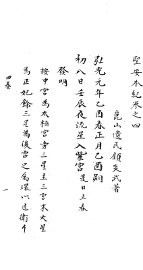 聖安本紀卷之四
崑山遺民顧炎武著
弘光元年乙酉春正月乙酉朔
初八日壬辰夜流星入紫宮是日立春
發明
按中宮為太極宮旁三星主三公末大星
為正妃餘三星為後宮之屬環以匡衛十
四卷
一